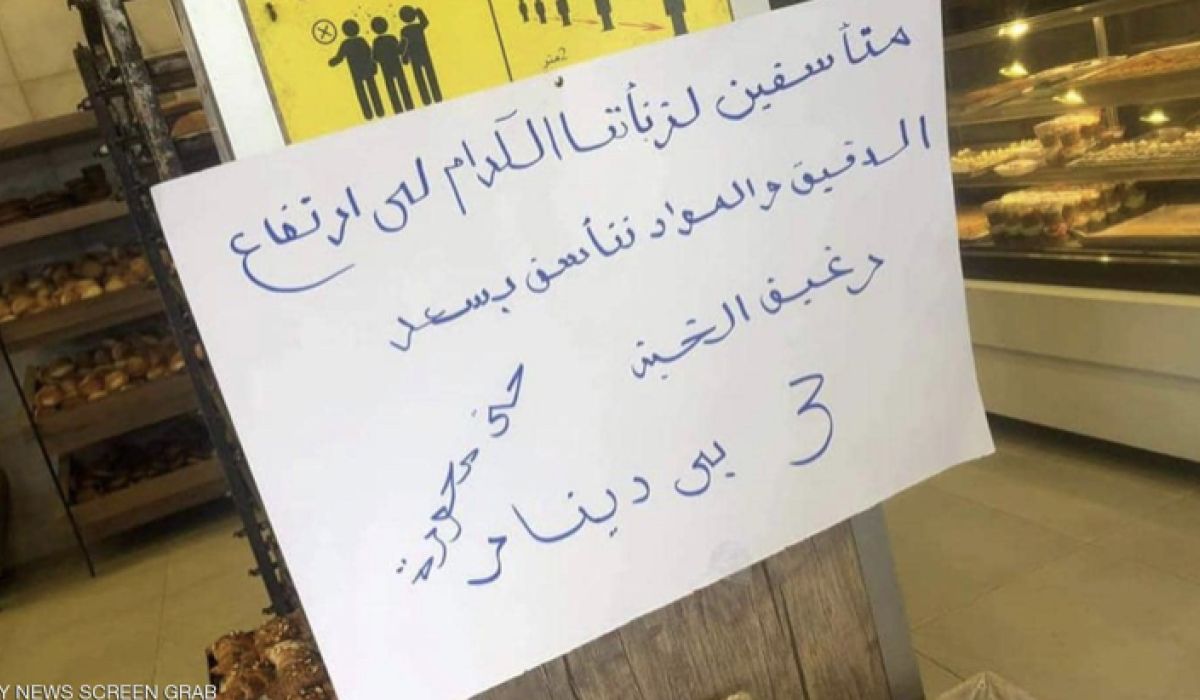 2متر
متأسفين لزبأئتنا الكرام لي ارتفاع
الدقيق والمواد نتأسف بسعر
رغيف الخبز
3 بي دينار
Y NEWS SCREEN GRAB